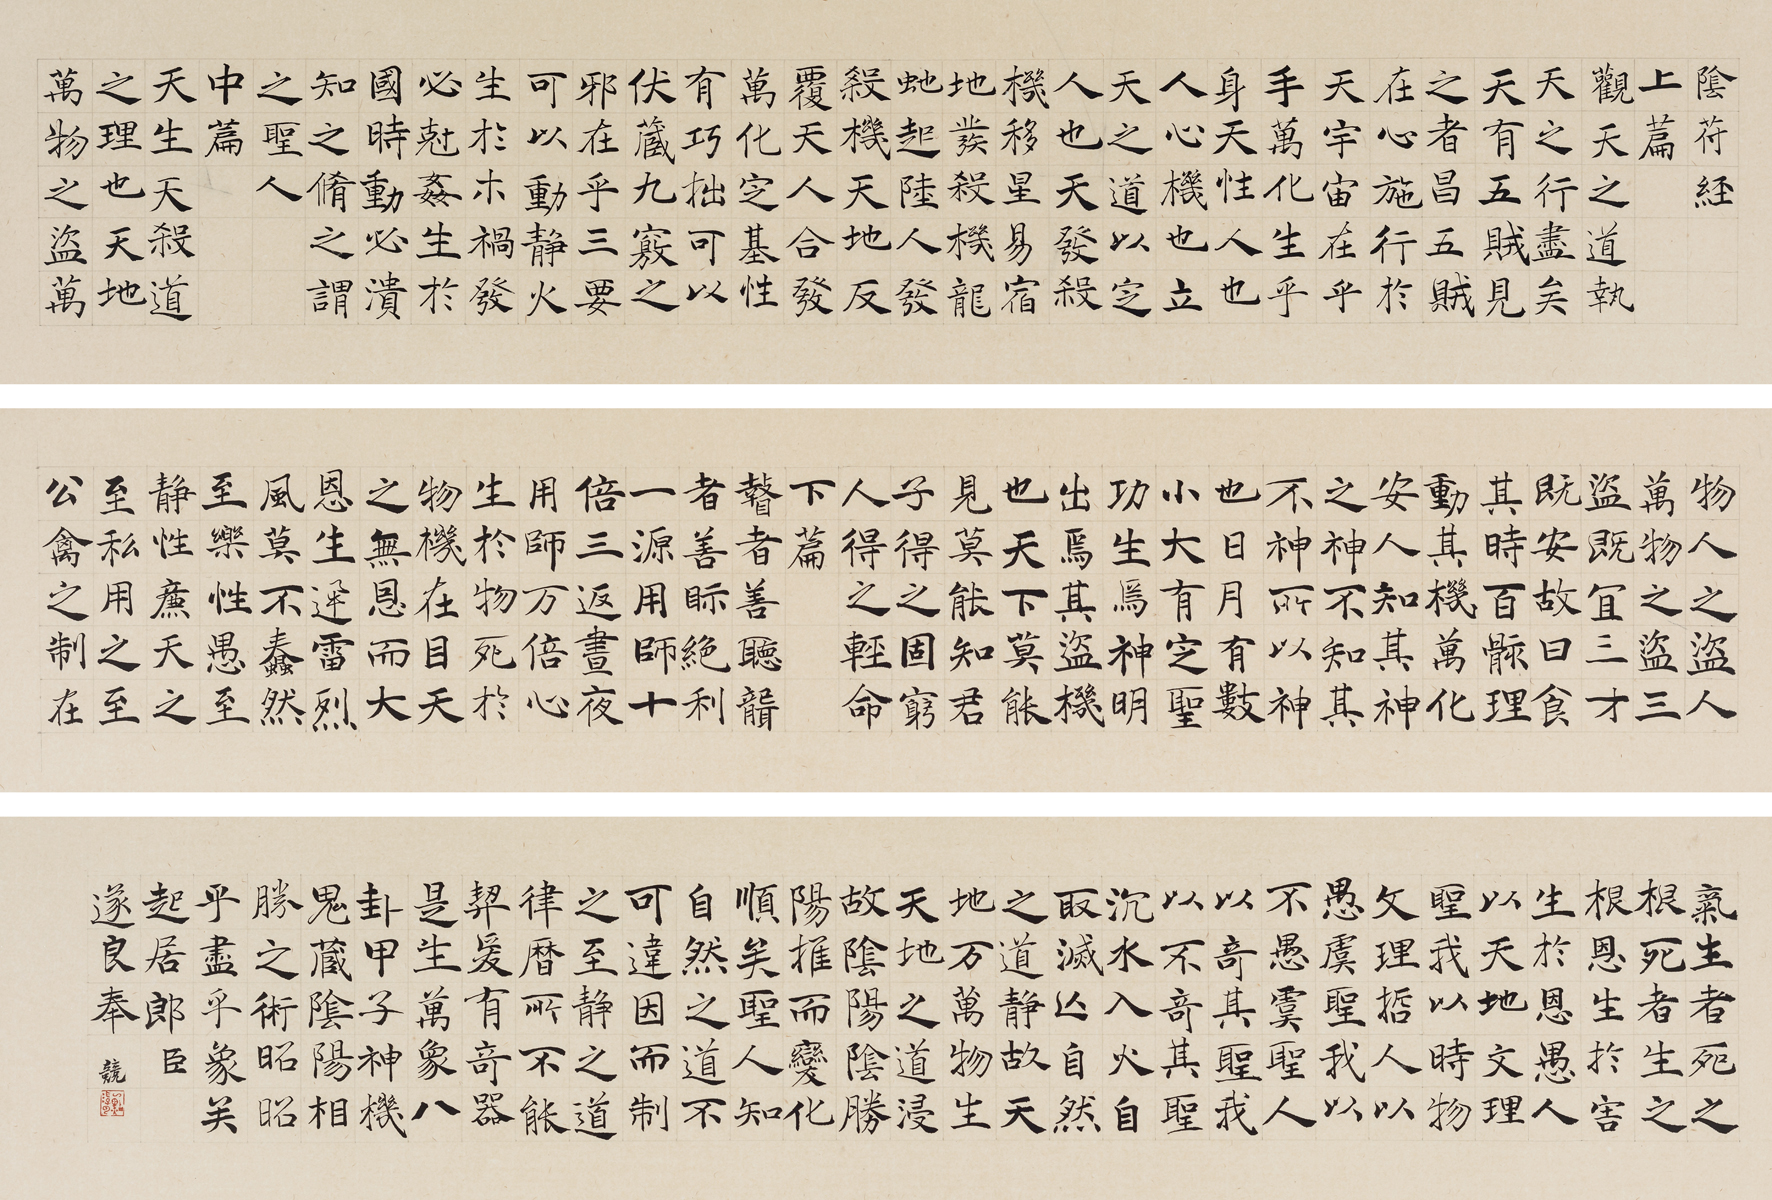 陰符経
上篇
觀天之道執
天之行盡矣
天有五賊見
之者昌五賊
在心施行於
天宇宙在乎
手萬化生乎
身天性人也
人心機也立
天之道以定
人也天發殺
機移星易宿
地發殺機龍
虵起陸人發
殺機天地反
覆天人合發
萬化定基性
有巧拙可以
伏蔵九竅之
邪在乎三要
可以動静火
生於木禍發
必剋姦生於
國時動必潰
知之脩之謂
之聖人
中篇
天生天殺道
之理也天地
萬物之盜萬
物人之盜人
萬物之盜三
盜既冝三才
既安故曰食
其時百骸理
動其機萬化
安人知其神
之神不知其
不神所以神
也日月有數
小大有定聖
功生焉神明
出焉其盜機
也天下莫能
見莫能知君
子得之固窮
人得之輕命
下篇
瞽者善聽聾
者善眎絶利
一源用師十
倍三返晝夜
用師万倍心
生於物死於
物機在目天
之無恩而大
恩生迅雷烈
風莫不蠢然
至樂性愚至
静性廉天之
至私用之至
公禽之制在
氣生者死之
根死者生之
根恩生於害
生於恩愚人
以天地文理
聖我以時物
文理哲人以
愚虞聖我以
不愚虞聖人
以奇其聖我
以不奇其聖
沉水入火自
取滅亾自然
之道静故天
地万萬物生
天地之道浸
故陰陽陰勝
陽推而變化
順矣聖人知
自然之道不
可違因而制
之至静之道
律暦所不能
契爰有奇器
是生萬象八
卦甲子神機
鬼蔵陰陽相
勝之術昭昭
乎盡乎象矣
起居郎臣
遂良奉
競